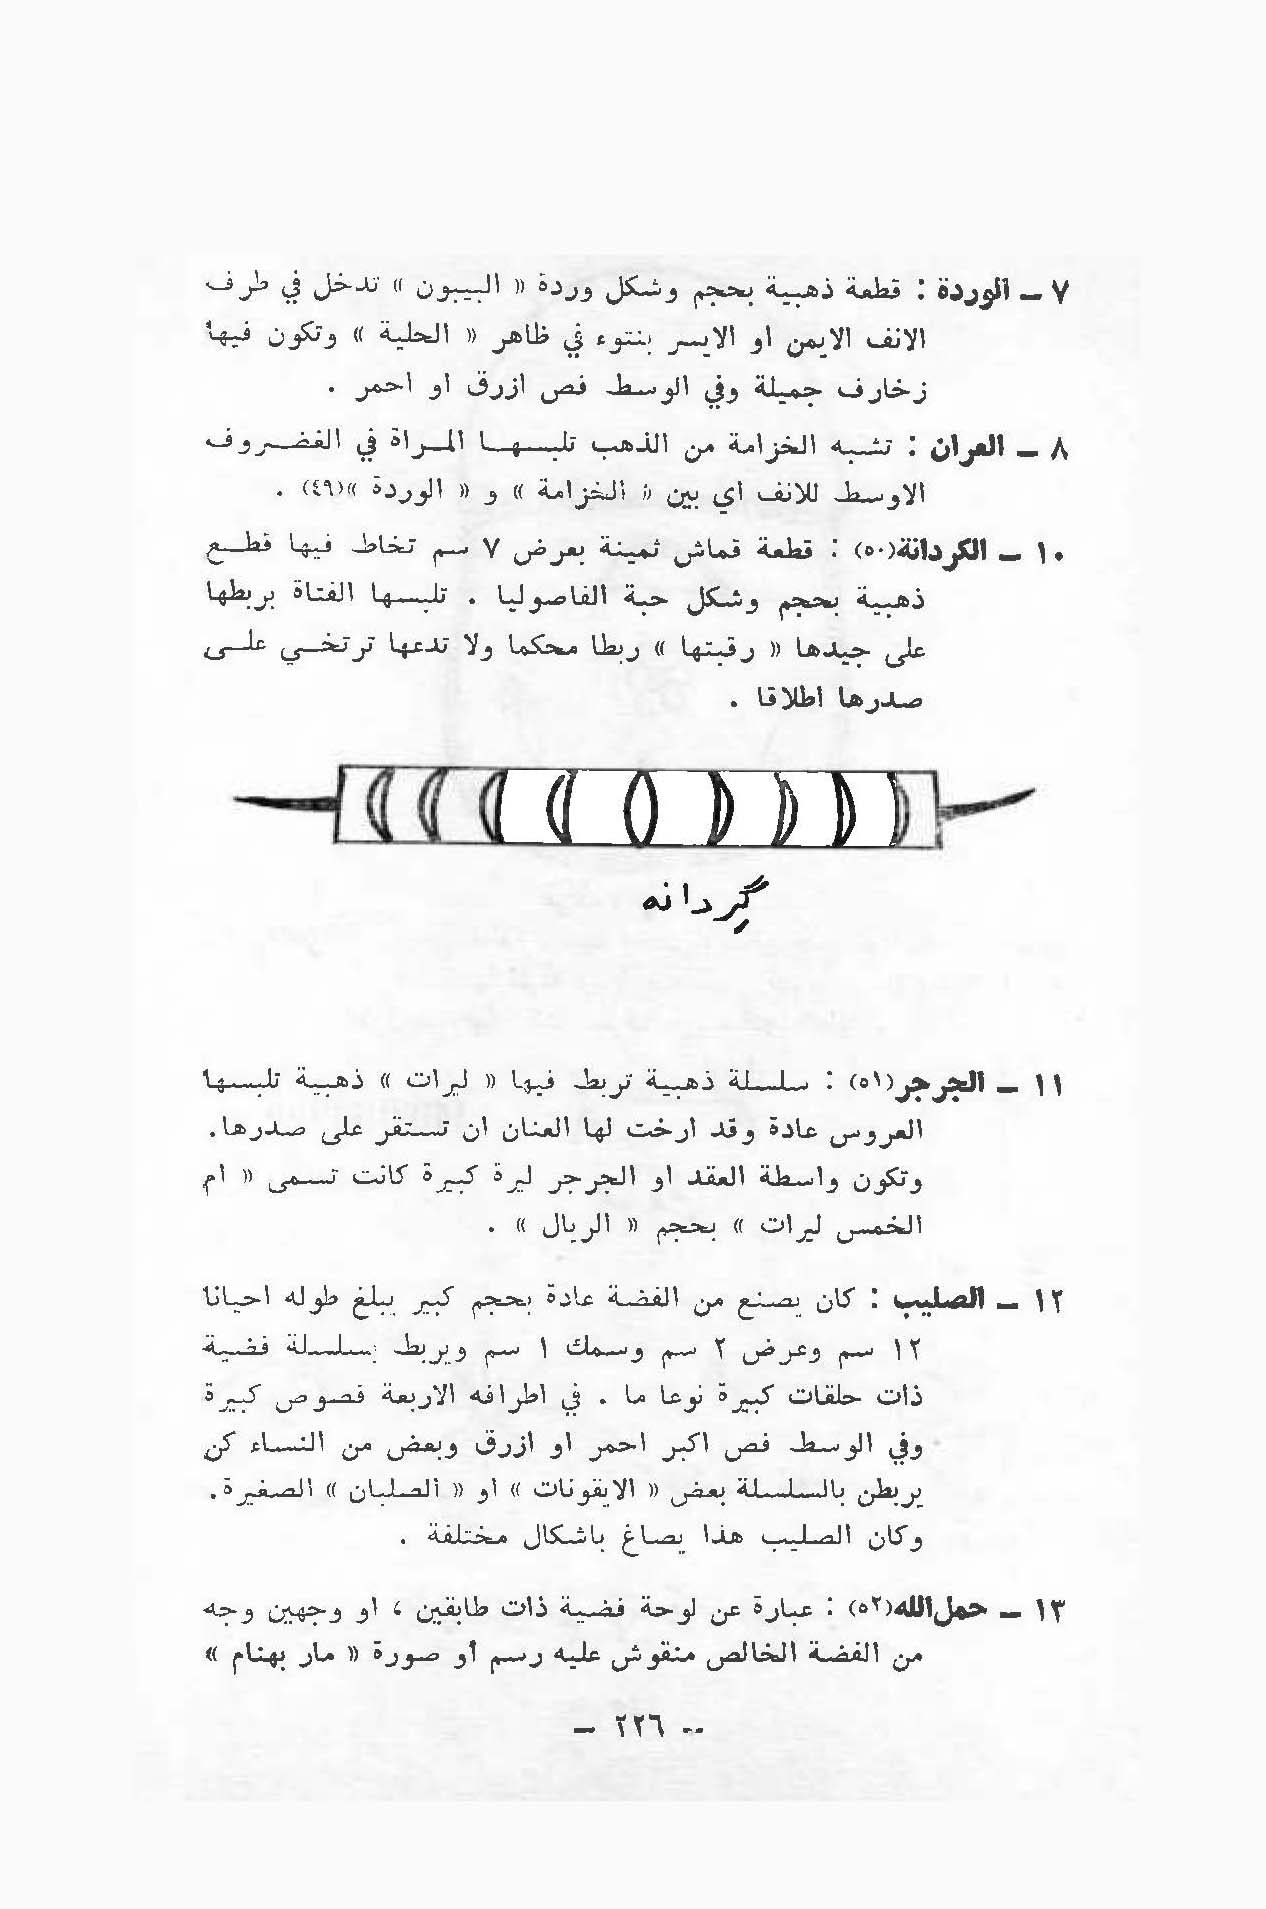 ٧ – الوردة : قطعة ذهبية بحجم وشكل وردة « البيبون » تدخل في طرف
الانف الايمن او الايسر بنتوء في ظاهر « الحلية » وتكون فيها
زخارف جميلة وفي الوسط فص ازرق او احمر .
٨ – العران : تشبه الخزامة من الذهب تلبسها المراة في الغضروف
الاوسط للانف اي بين « الخزامة » و « الوردة »(٤٩) .
١٠ – الكردانة(٥٠) : قطعة قماش ثمينة بعرض ٧ سم تخاط فيها قطع
ذهبية بحجم وشكل حبة الفاصوليا . تلبسها الفتاة بربطها
على جيدها « رقبتها » ربطا محكما ولا تدعها ترتخي على
صدرها اطلاقا .
گِردانه
١١ – الجرجر(٥١) : سلسلة ذهبية تربط فيها « ليرات » ذهبية تلبسها
العروس عادة وقد ارخت لها العنان ان تستقر على صدرها.
وتكون واسطة العقد او الجرجر ليرة كبيرة كانت تسمى « ام
الخمس ليرات » بحجم « الريال » .
١٢ – الصليب : كان يصنع من الفضة عادة بحجم كبير يبلغ طوله احيانا
١٢ سم وعرض ٢ سم وسمك ١ سم ويربط بسلسلة فضية
ذات حلقات كبيرة نوعا ما . في اطرافه الاربعة فصوص كبيرة
وفي الوسط فص اكبر احمر او ازرق وبعض من النساء كن
يربطن بالسلسلة بعض « الايقونات » او « الصلبان » الصغيرة.
وكان الصليب هذا يصاغ باشكال مختلفة .
١٣ – حمل الله(٥٢) : عبارة عن لوحة فضية ذات طابقين ، او وجهين وجه
من الفضة الخالص منقوش عليه رسم أو صورة « مار بهنام »
– ٢٢٦ –